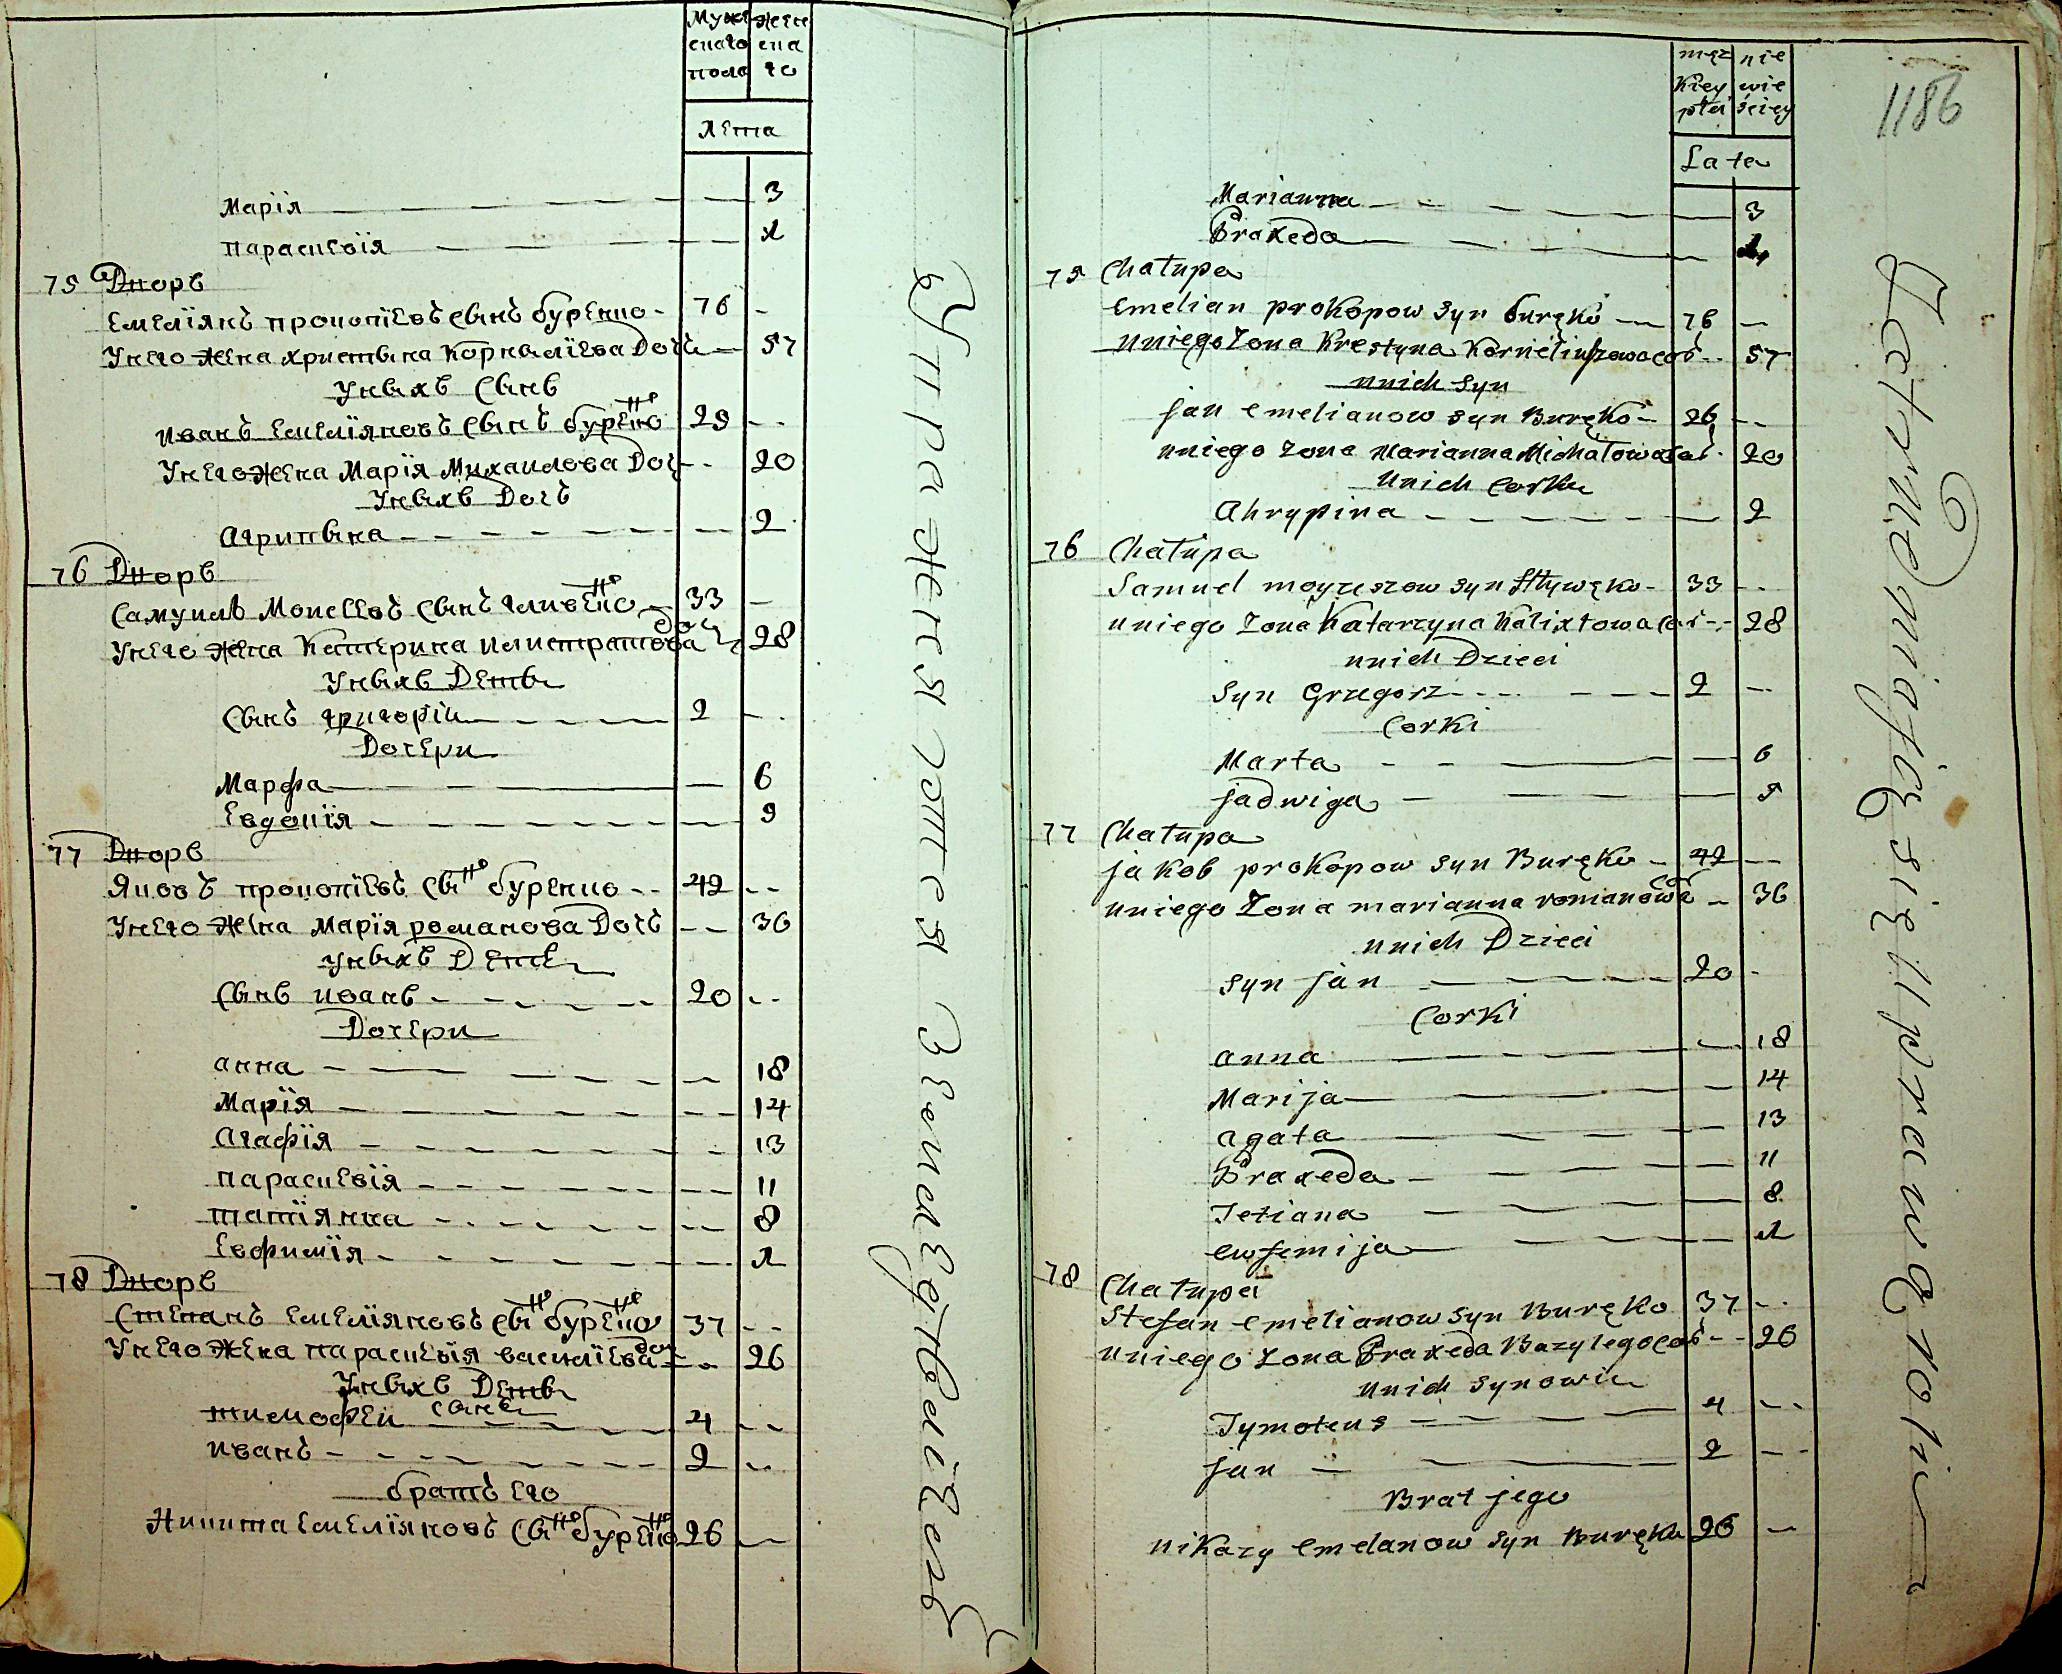 Муже Жен
скаго ска
полѣ го
Лета
Марія 3
Параскевїя 1
75 Дворъ
Емелїянъ Прокопїевъ сынъ Буренко 76
У него жена Христына Корналїева дочь 57
У ныхъ сынъ
Иванъ Емелїяновъ сынъ Буренко 25
У него жена Марїя Михаилова доч 20
У ныхъ дочь
Агрипына 2
76 Дворъ
Самуилъ Мойсеевъ сынъ
У него жена Катерина доч 28
У ныхъ деты
Сынъ Григорїй 2
Дочери
Марфа 6
Евдокїя 5
77 Дворъ
Яковъ Прокопїевъ сын Буренко 42
У него жена Марїя Романова дочь 36
У ныхъ дети
Сынъ Иванъ 20
Дочери
Анна 18
Марїя 14
Агафїя 13
Параскевїя 11
Татїянна 8
Евфимїя 1
78 Дворъ
Степанъ Емелїяновъ сын Буренко 37
У него жена Параскевїя Василїева доч 26
У ныхъ деты
сыны
Тимофей 4
Иванъ 2
Братъ его
Никита Емелїяновъ сын Буренко 26
męz nie
kiey wie
płci ściey
Lata
1186
Marianna 3
Praxeda 1
75 Chałupa
Emelian Prokopow syn Buręko 76
u niego żona Krestyna Korneliuszowa cor 57
u nich syn
Jan Emelianow syn Buręko 26
u niego żona Marianna Michałowa cor 20
u nich corka
Ahrypina 2
76 Chałupa
Samuel Moyzeszow syn 33
u niego żona Katarzyna Kalixtowa cor 28
u nich dzieci
syn Grzegorz 2
corki
Marta 6
Jadwiga 5
77 Chałupa
Jakob Prokopow syn Buręko 42
u niego żona Marianna Romanowa cor 36
u nich dzieci
syn Jan 20
corki
Anna 18
Marija 14
Agata 13
Praxeda 11
Tetiana 8
Ewfemija 1
78 Chałupa
Stefan Emelianow syn Buręko 37
u niego żona Praxeda Bazylego cor 26
u nich synowie
Tymoteus 4
Jan 2
Brat jego
Nikazy Emelanow syn Buręko 26